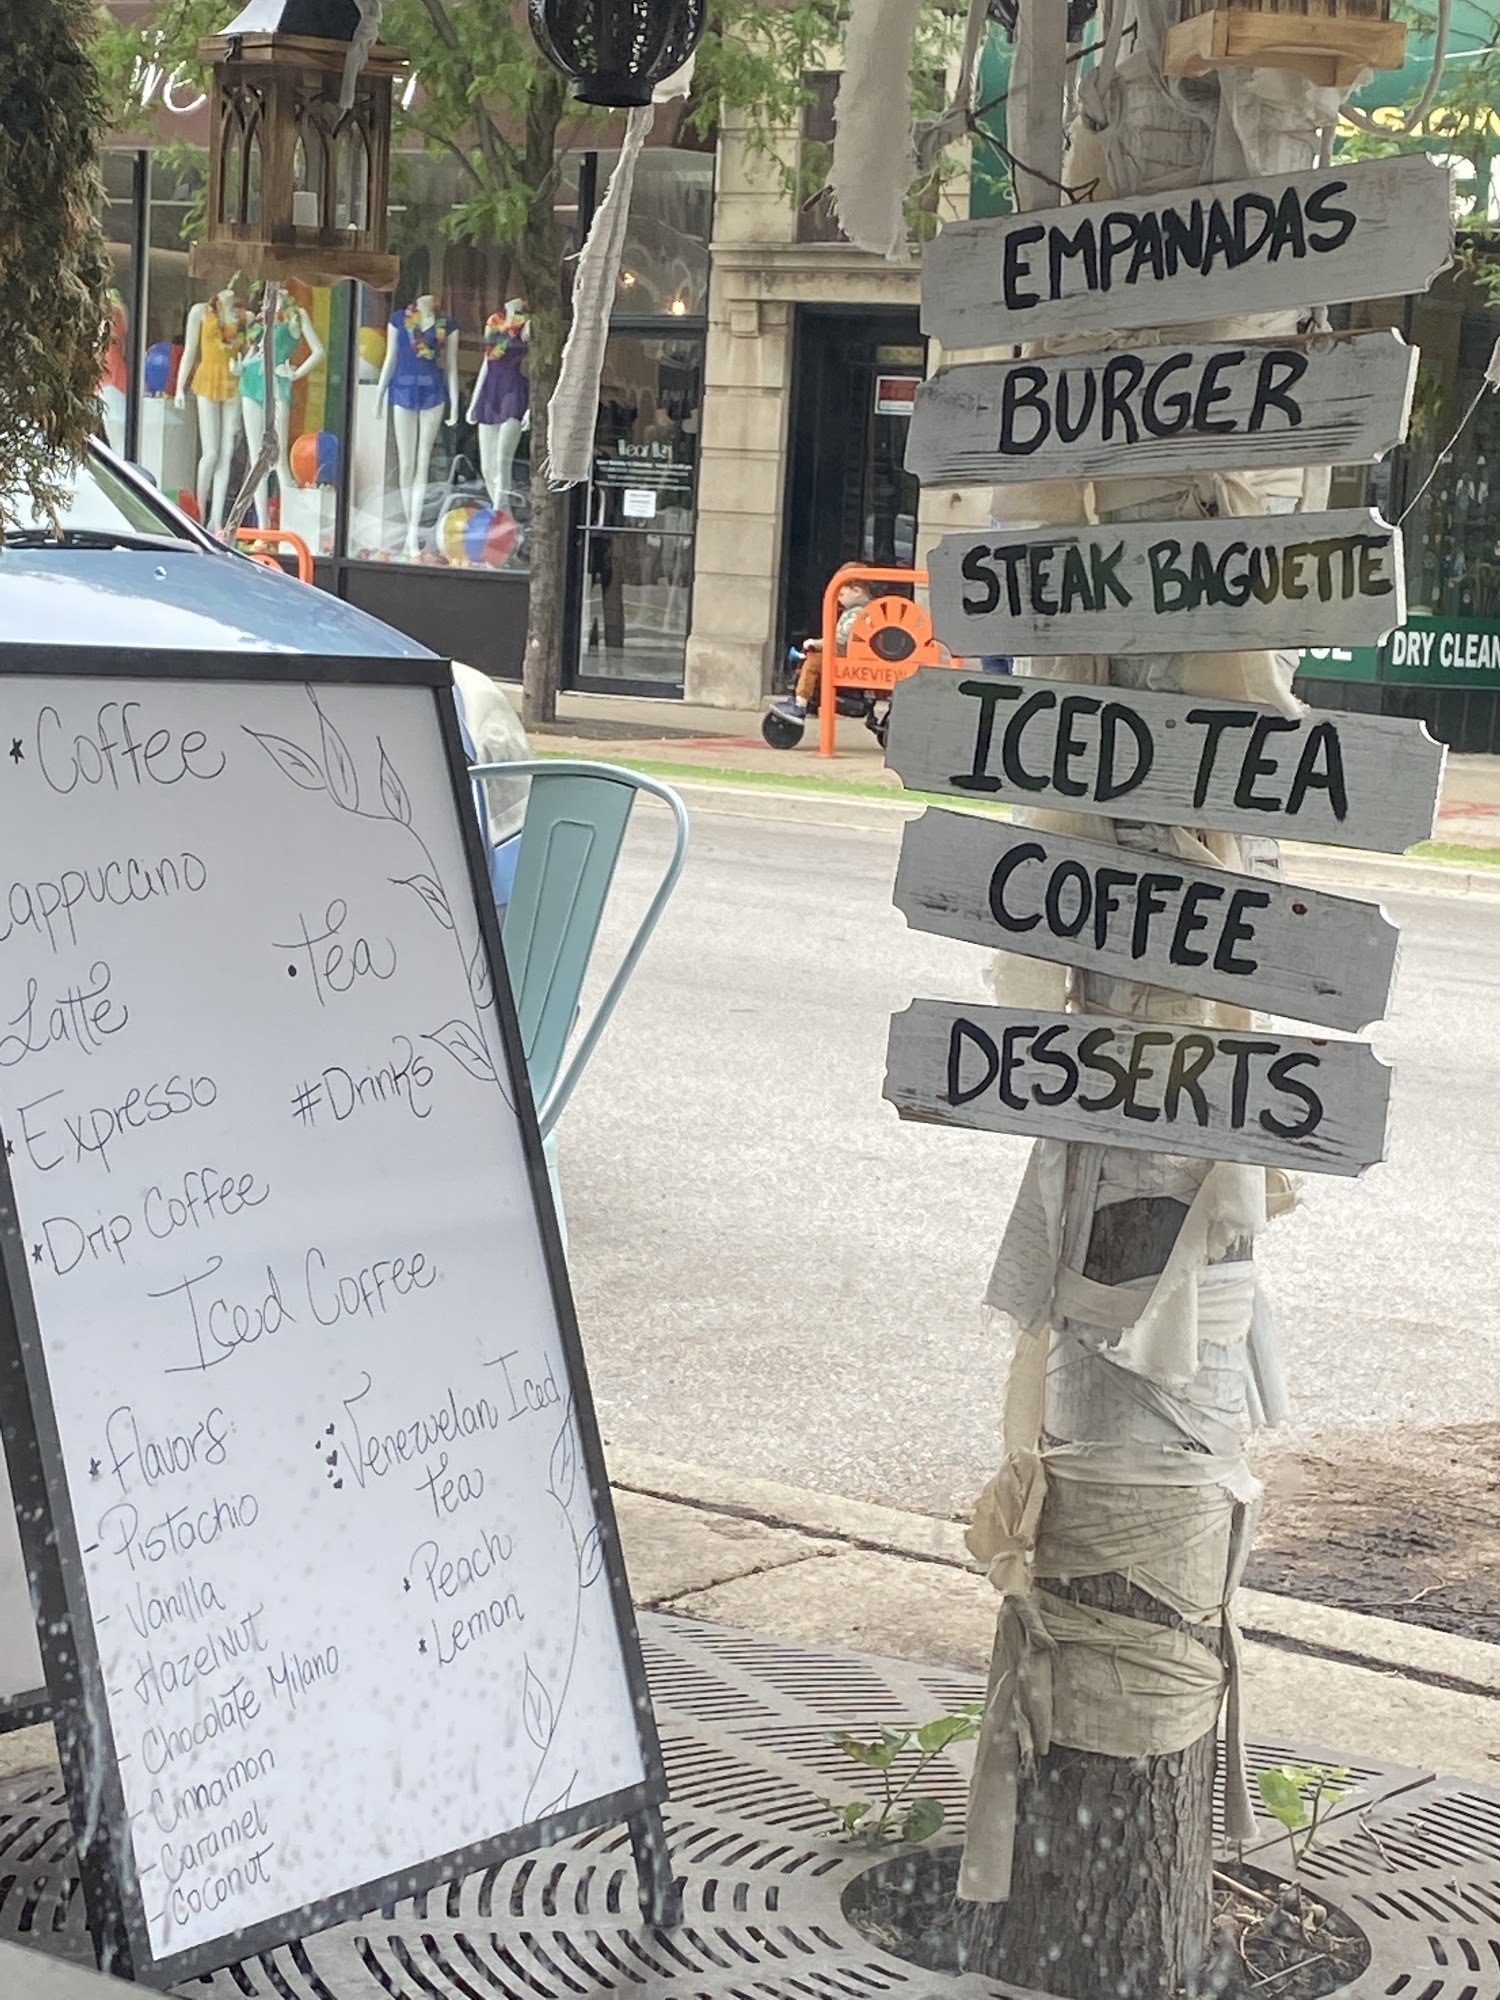 EMPANADAS
BURGER
STEAK BAGUETTE
ICED TEA
COFFEE
DESSERTS
LAKEVIEW
DRY CLEAN
* Coffee
Cappuccino
Latte
* Expresso
* Drip Coffee
• Tea
#Drinks
Iced Coffee
* Flavors:
- Pistachio
- Vanilla
- Hazelnut
- Chocolate Milano
- Cinnamon
- Caramel
- Coconut
Venezuelan Iced
Tea
• Peach
* Lemon